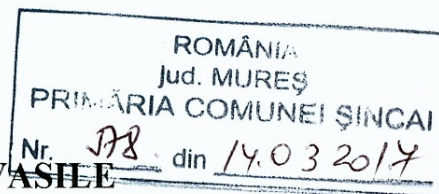 ROMÂNIA
Jud. MUREȘ
PRIMĂRIA COMUNEI ȘINCAI
Nr. 578 din 14.03 2017
VASILE